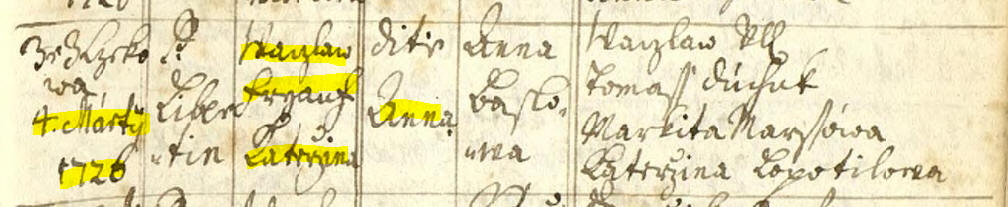 wa,
4. Marty
1726
P.
Liber
tin
Waczlaw
Katerzina
ditie
Anna
Anna
Baslo-
wa
Waczlaw
Tomass Duchek
Markita Marssowa
Katerzina Lopotilowa